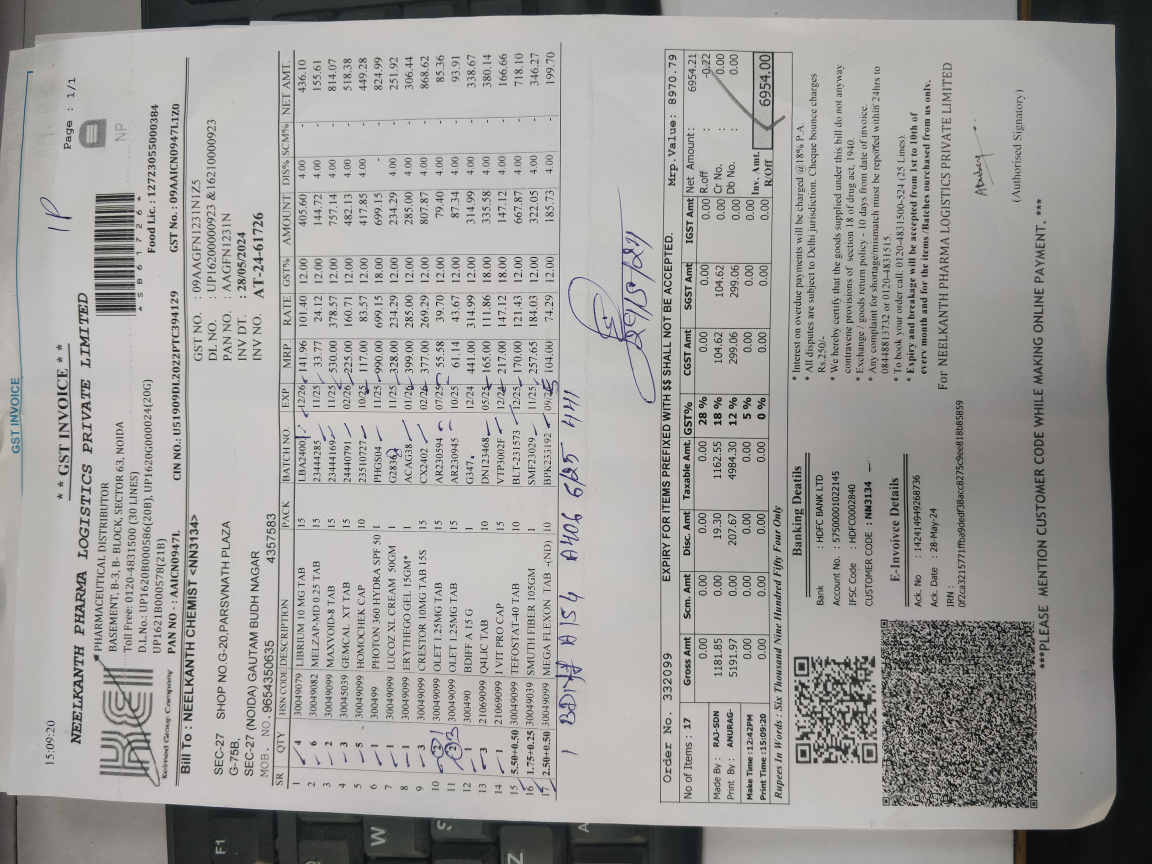 GST INVOICE
15:09:20
** GST INVOICE **
1P
Page : 1/1
NEELKANTH PHARMA LOGISTICS PRIVATE LIMITED
NP
PHARMACEUTICAL DISTRIBUTOR
BASEMENT, B-3, B- BLOCK, SECTOR 63, NOIDA
Toll Free: 0120-4831500 (30 LINES)
D.L.No.: UP1620B000586(20B), UP1620G000024(20G)
UP1621B000578(21B)
Food Lic. : 12723055000384
Keimed Group Company
PAN NO - : AAICN0947L
CIN NO.: U51909DL2022PTC394129
GST No. : 09AAICN0947L1Z0
Bill To : NEELKANTH CHEMIST <NN3134>
SEC-27 SHOP NO.G-20,PARSVNATH PLAZA
G-75B,
SEC-27 (NOIDA) GAUTAM BUDH NAGAR
MOB. NO. 9654350635 4357583
GST NO. : 09AAGFN1231N1Z5
DL NO. : UP16200000923 &16210000923
PAN NO. : AAGFN1231N
INV DT. : 28/05/2024
INV NO. AT-24-61726
SR QTY HSN CODE DESCRIPTION PACK BATCH NO. EXP MRP. RATE GST% AMOUNT DIS% SCM% NET AMT.
1 4 30049079 LIBRIUM 10 MG TAB 15 LBA24003 12/26 141.96 101.40 12.00 405.60 4.00 - 436.10
2 6 30049082 MELZAP-MD 0.25 TAB 15 23444285 11/25 33.77 24.12 12.00 144.72 4.00 - 155.61
3 2 30049099 MAXVOID-8 TAB 15 23444169 11/25 530.00 378.57 12.00 757.14 4.00 - 814.07
4 3 30045039 GEMCAL XT TAB 15 24440791 02/26 225.00 160.71 12.00 482.13 4.00 - 518.38
5 5 30049099 HOMOCHEK CAP 10 23510727 10/25 117.00 83.57 12.00 417.85 4.00 - 449.28
6 1 300499 PHOTON 360 HYDRA SPF 50 1 PHGS04 11/25 990.00 699.15 18.00 699.15 - - 824.99
7 1 30049099 LUCOZ XL CREAM 50GM 1 11/25 328.00 234.29 12.00 234.29 4.00 - 251.92
8 1 30049099 ERYTHEGO GEL 15GM* 1 ACAG38 01/26 399.00 285.00 12.00 285.00 4.00 - 306.44
9 3 30049099 CRESTOR 10MG TAB 15S 15 CX2402 02/26 377.00 269.29 12.00 807.87 4.00 - 868.62
10 2 30049099 OLET 1.25MG TAB 15 AR230594 07/25 55.58 39.70 12.00 79.40 4.00 - 85.36
11 2 30049099 OLET 1.25MG TAB 15 AR230945 10/25 61.14 43.67 12.00 87.34 4.00 - 93.91
12 1 300490 BDIFF A 15 G 1 G347 12/24 441.00 314.99 12.00 314.99 4.00 - 338.67
13 3 21069099 Q4LIC TAB 10 DN123468 05/25 165.00 111.86 18.00 335.58 4.00 - 380.14
14 1 21069099 I VIT PRO CAP 10 VTP3002F 12/24 217.00 147.12 18.00 147.12 4.00 - 166.66
15 5.50+0.50 30049099 TEFOSTAT-40 TAB 10 BLT-231573 12/25 170.00 121.43 12.00 667.87 4.00 - 718.10
16 1.75+0.25 30049039 SMUTH FIBER 105GM 1 SMF23029 11/25 257.65 184.03 12.00 322.05 4.00 - 346.27
17 2.50+0.50 30049099 MEGA FLEXON TAB -(ND) 10 BPK233192 104.00 74.29 12.00 185.73 4.00 - 199.70
1 A154 A406 6/25 441
29/5/24
Order No. 332099 EXPIRY FOR ITEMS PREFIXED WITH $$ SHALL NOT BE ACCEPTED. Mrp.Value: 8970.79
No of Items : 17 Gross Amt Scm. Amt Disc. Amt Taxable Amt. GST% CGST Amt SGST Amt IGST Amt Net Amount: 6954.21
0.00 0.00 0.00 0.00 28 % 0.00 0.00 0.00 R.off : -0.22
Made By : RAJ-SDN 1181.85 0.00 19.30 1162.55 18 % 104.62 104.62 0.00 Cr No. : 0.00
Print By : ANURAG- 5191.97 0.00 207.67 4984.30 12 % 299.06 299.06 0.00 Db No. : 0.00
Make Time :12:42PM 0.00 0.00 0.00 0.00 5 % 0.00 0.00 0.00 Inv. Amt. 6954.00
Print Time :15:09:20 0.00 0.00 0.00 0.00 0 % 0.00 0.00 0.00 R.Off
Rupees In Words : Six Thousand Nine Hundred Fifty Four Only
Banking Deatils
Bank : HDFC BANK LTD
Account No. : 57500001022145
IFSC Code : HDFC0002840
CUSTOMER CODE : NN3134
E-Invoicee Details
Ack. No : 142414949268736
Ack. Date : 28-May-24
IRN :
0f2ca3215771ffba9dedf38acc8275c9ee818b85859
* Interest on overdue payments will be charged @18% P.A.
* All disputes are subject to Delhi jurisdiction. Cheque bounce charges
Rs.250/-
* We hereby certify that the goods supplied under this bill do not anyway
contravene provisions of section 18 of drug act, 1940.
* Exchange / goods return policy - 10 days from date of invoice.
* Any complaint for shortage/mismatch must be reported within 24hrs to
08448813732 or 0120-4831515.
* To book your order call: 0120-4831500-524 (25 Lines).
* Expiry and breakage will be accepted from 1st to 10th of
every month and for the items /Batches purchased from us only.
For NEELKANTH PHARMA LOGISTICS PRIVATE LIMITED
(Authorised Signatory)
***PLEASE MENTION CUSTOMER CODE WHILE MAKING ONLINE PAYMENT. ***
F1
W
S
A
Z